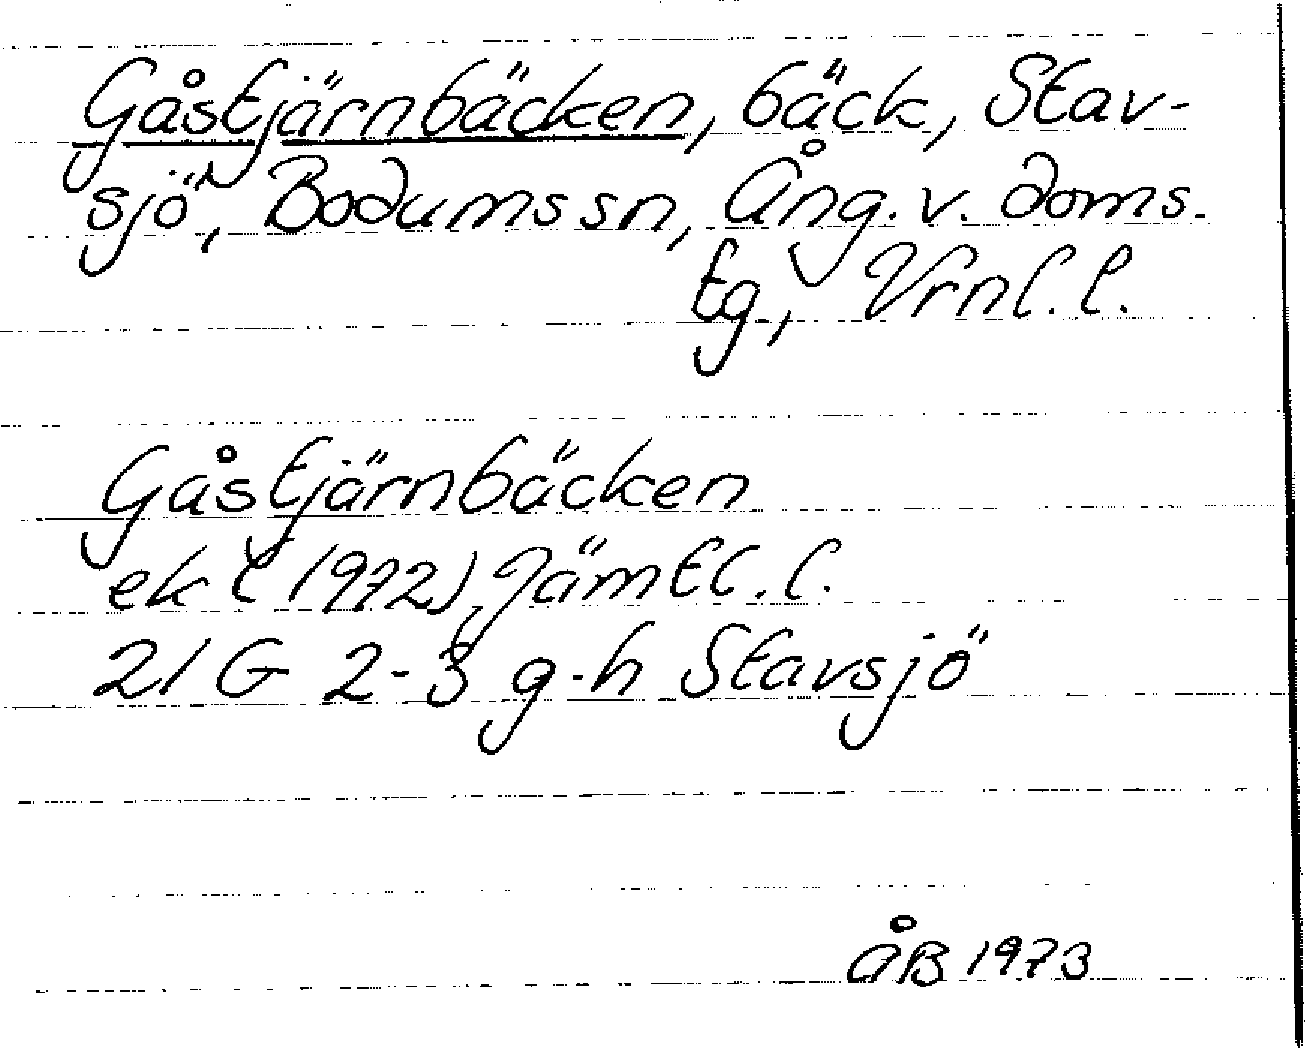 Gåstjärnbäcken, bäck, Stav-
sjö, Bodums sn, Ång. v. doms.
tg., Vrnl. l.
Gåstjärnbäcken
ek (1972), Jämtl. l.
21 G 2-3 g-h Stavsjö
ÅB 1973